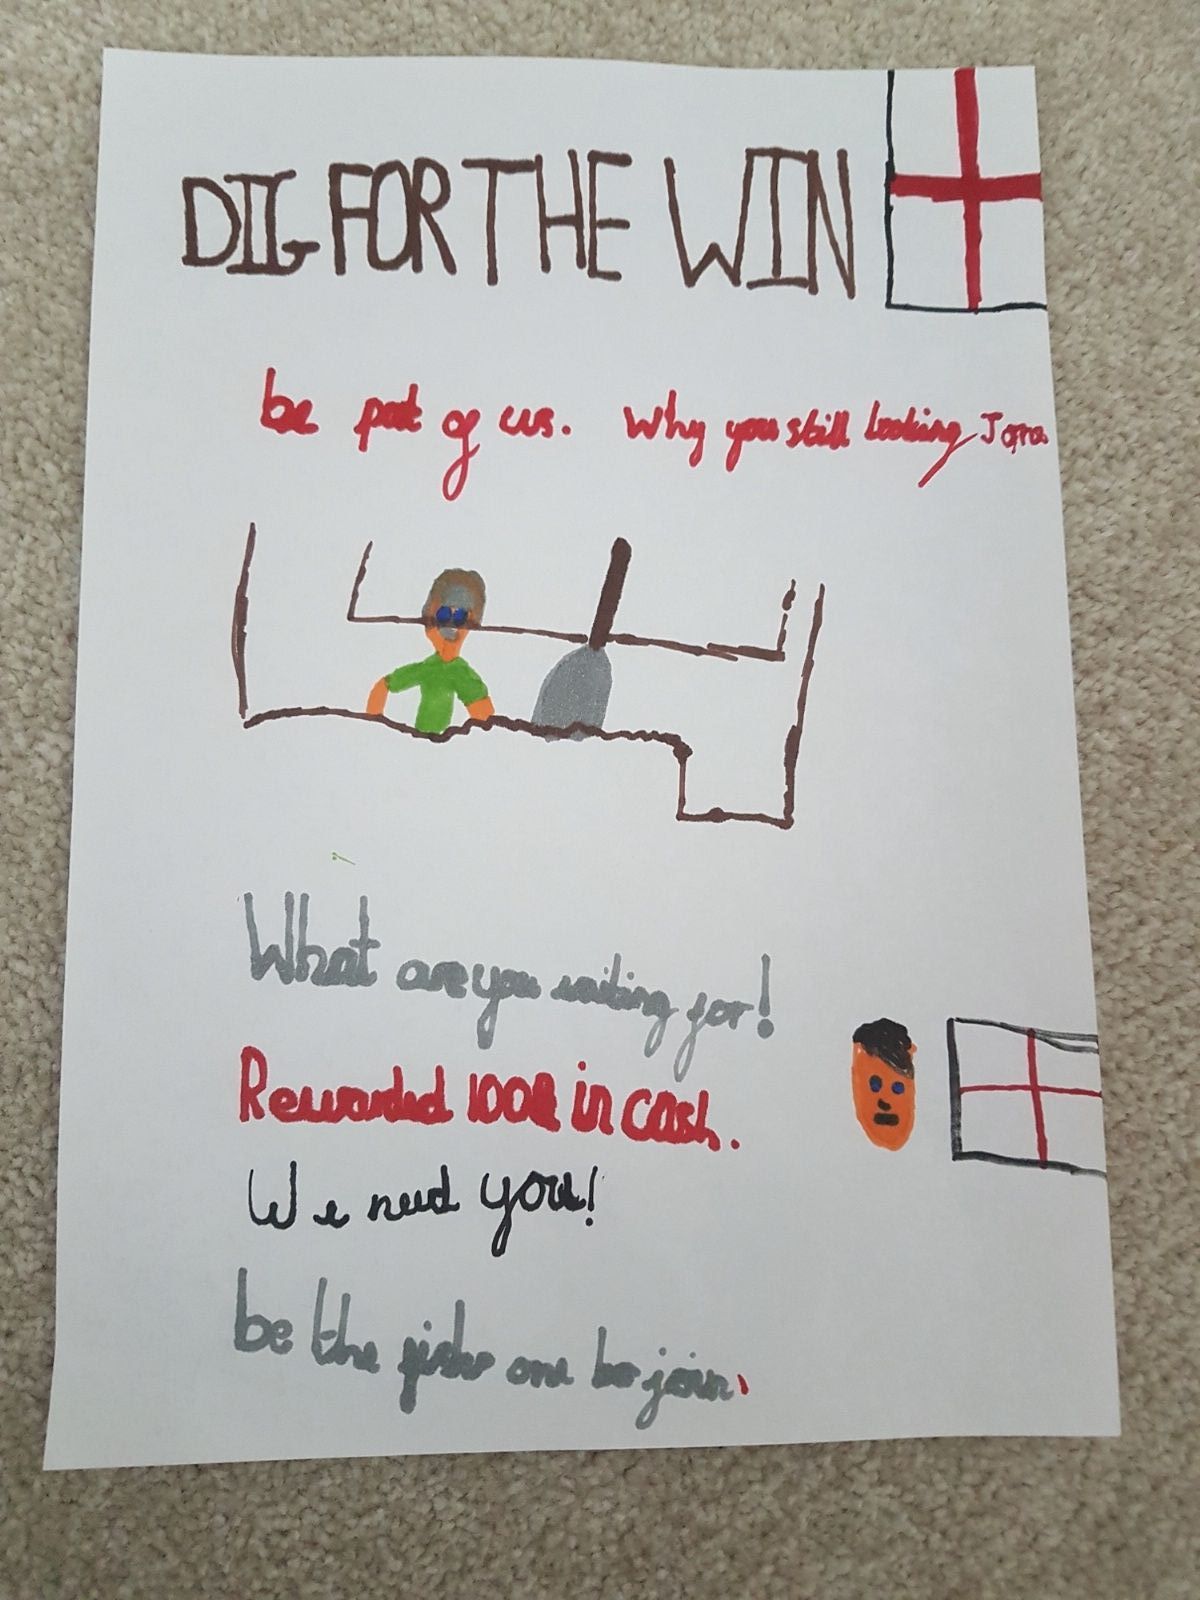 DIG FOR THE WIN
be part of us. Why you still looking Join
What are you waiting for!
Rewarded 100£ in cash.
We need you!
be the first one to join.